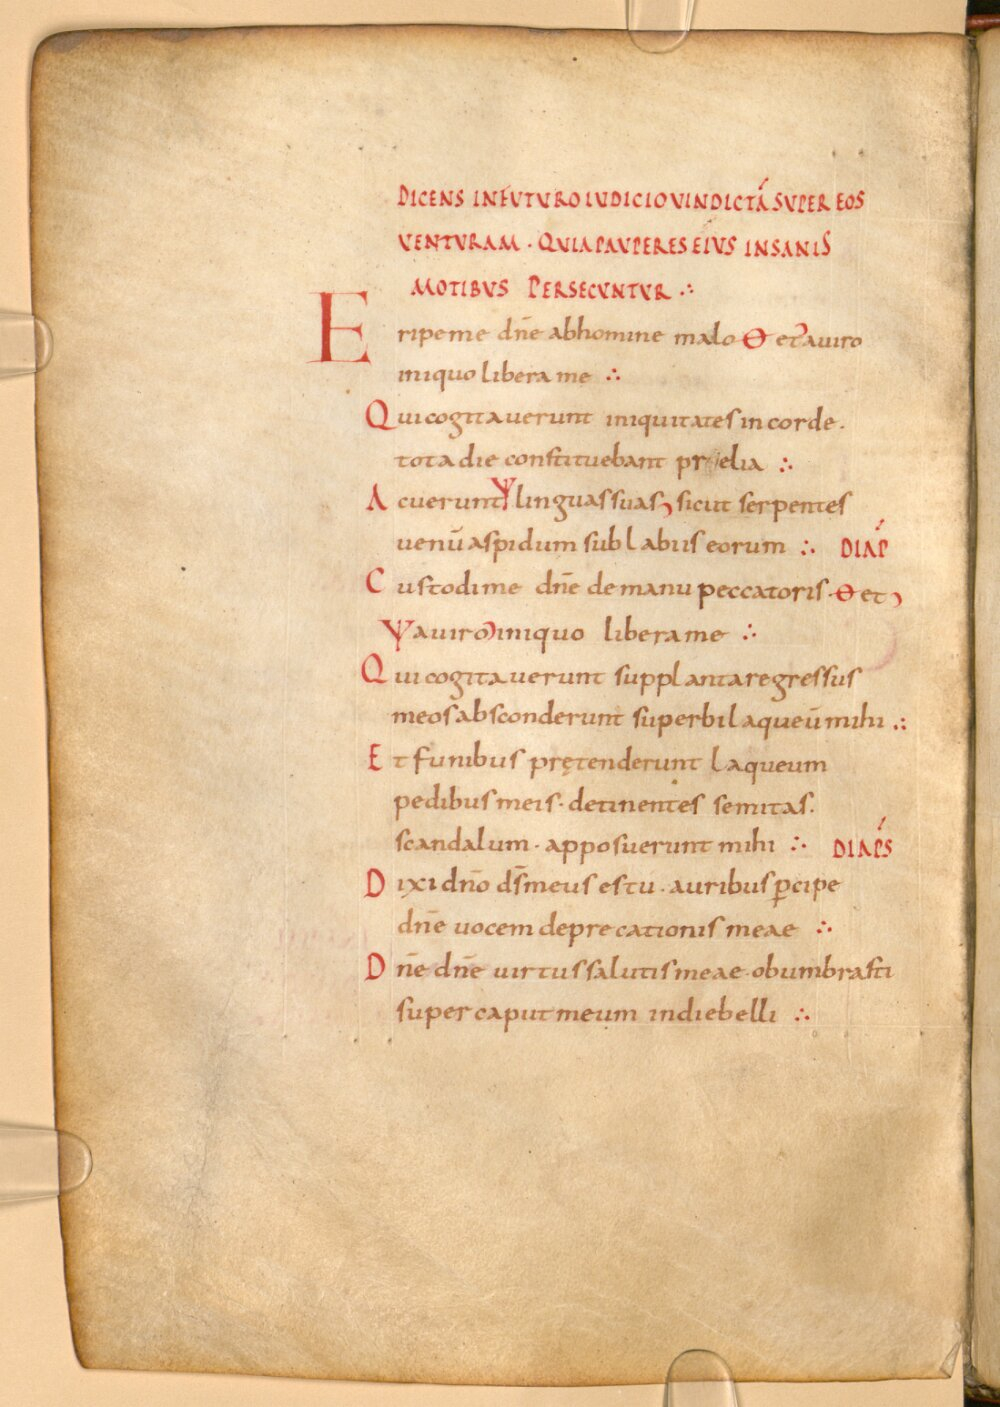 DICENS IN FUTURO IUDICIO UINDICTÁ SUPER EOS
UENTURAM · QUIA PAUPERES EIUS INSANIS
MOTIBUS PERSECUNTUR ∴
Eripe me dn̄e ab homine malo ϴ et auiro
iniquo libera me ∴
Qui cogitauerunt iniquitates in corde ·
tota die constituebant prelia ∴
Acuerunt ψ linguas suas sicut serpentes
uenū aspidum sub labiis eorum ∴ DIAṔ
Custodi me dn̄e de manu peccatoris · ϴ et
ψ auiro iniquo libera me ∴
Qui cogitauerunt supplantare gressus
meos absconderunt superbi laqueū mihi ∴
Et funibus prętenderunt laqueum
pedibus meis · detinentes semitas ·
scandalum · apposuerunt mihi ∴ DIAṔS
Dixi dn̄o ds̄ meus es tu · auribus ꝑcipe
dn̄e uocem deprecationis meae ∴
Dn̄e dn̄e uirtus salutis meae · obumbrasti
super caput meum in die belli ∴